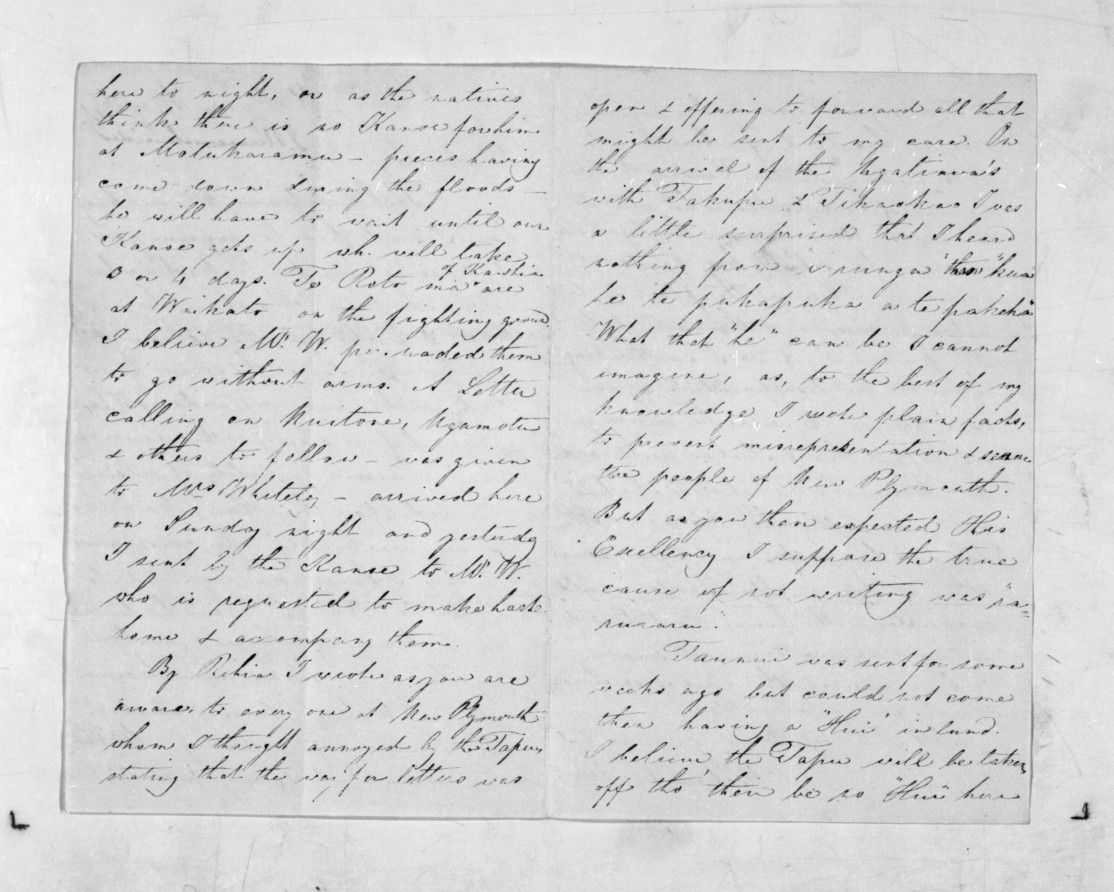 here to night, or as the natives
think there is no Kanoe for him
at Motukaramu - pieces having
come down during the floods -
he will have to wait until our
Kanoe gets up wh. will take
3 or 4 days. Te Roto ma of Kawhia are
at Waikato on the fighting ground
I believe Mr. W. persuaded them
to go without arms. A Letter
calling on Nuitone, Ngamotu
& others to follow - was given
to Mrs Whiteley - arrived here
on Sunday night and yesterday
I sent by the Kanoe to Mr. W.
who is requested to make haste
home & accompany them.
By Rihia I wrote as you are
aware, to every one at New Plymouth
whom I thought annoyed by the Tapu,
stating that the way for letters was
open & offering to forward all that
might be sent to my care. On
the arrival of the Ngatiawa's
with Takupu & Tikaokao I was
a little surprised that I heard
nothing from "runga" than "kua
he te pukapuka a te pakeha"
What that "he" can be I cannot
imagine, as, to the best of my
knowledge I wrote plain facts,
to prevent misrepresentation & serve
the people of New Plymouth.
But as you then expected His
Excellency I suppose the true
cause of not writing was "ra=
ruraru".
Taunui was sent for some
weeks ago but could not come
then having a "Hui" inland.
I believe the Tapu will be taken
off tho' their be no "Hui" here